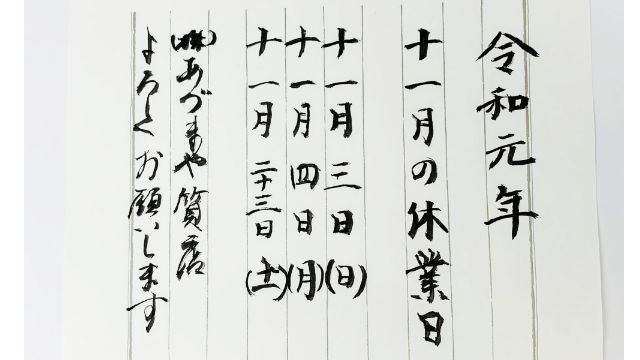 令和元年
十一月の休業日
十一月三日(日)
十一月四日(月)
十一月二十三日(土)
(株)あづまや質店
よろしくお願いします